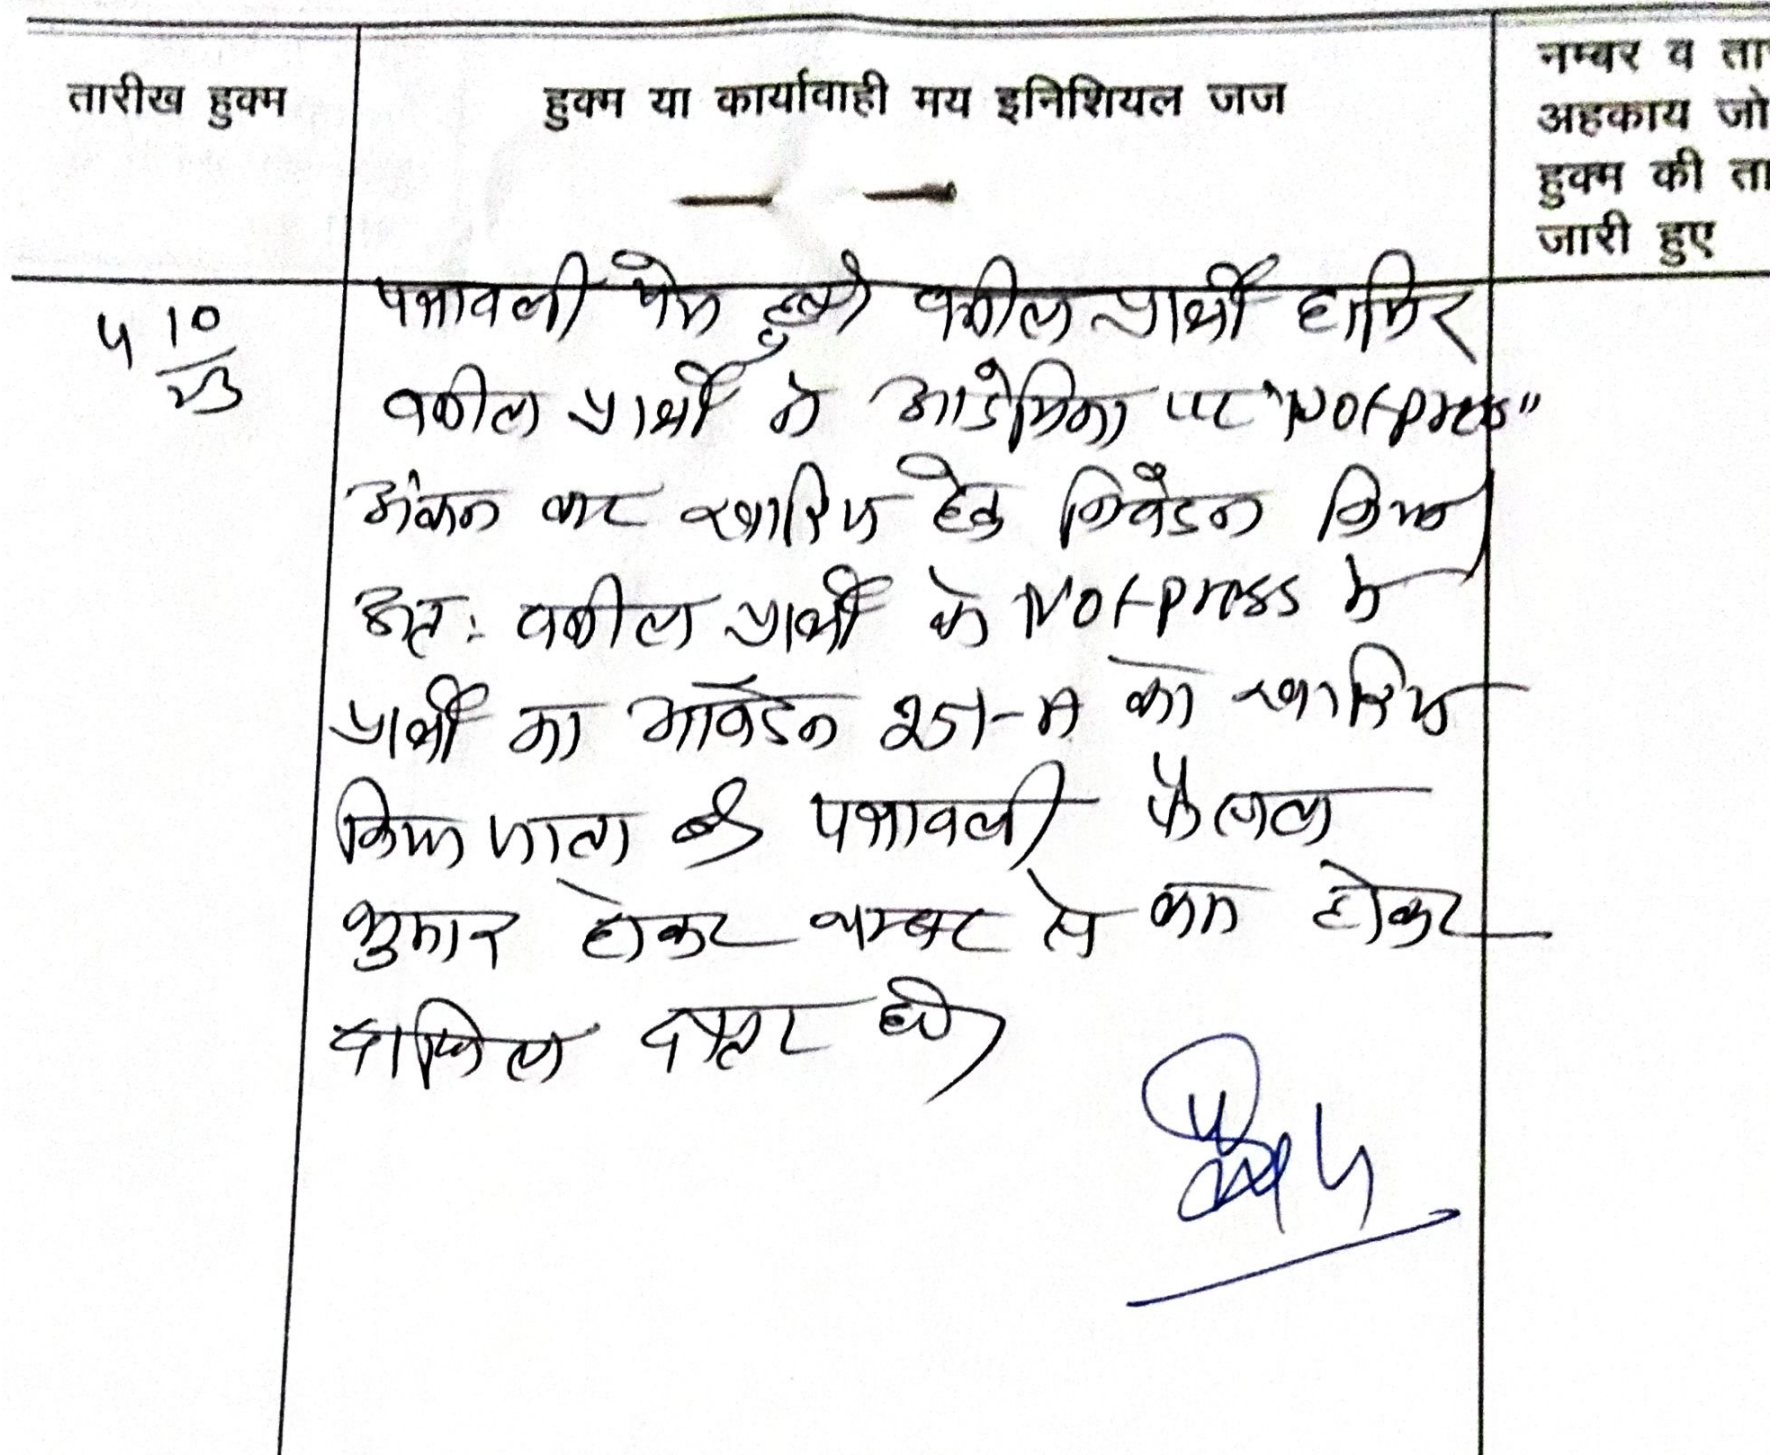 तारीख हुक्म
हुक्म या कार्यावाही मय इनिशियल जज
नम्बर व ता
अहकाय जो
हुक्म की ता
जारी हुए
5 10/23
पत्रावली पेश हुई वकील प्रार्थी हाजिर
वकील प्रार्थी ने आर्डरशीट पर "Not press"
अंकन कर खारिज हेतु निवेदन किया
अतः वकील प्रार्थी के Not press से
प्रार्थी का आवेदन 251-A को खारिज
किया जाता है पत्रावली फैसल
शुमार होकर नम्बर से कम होकर
दाखिल दफ्तर हो